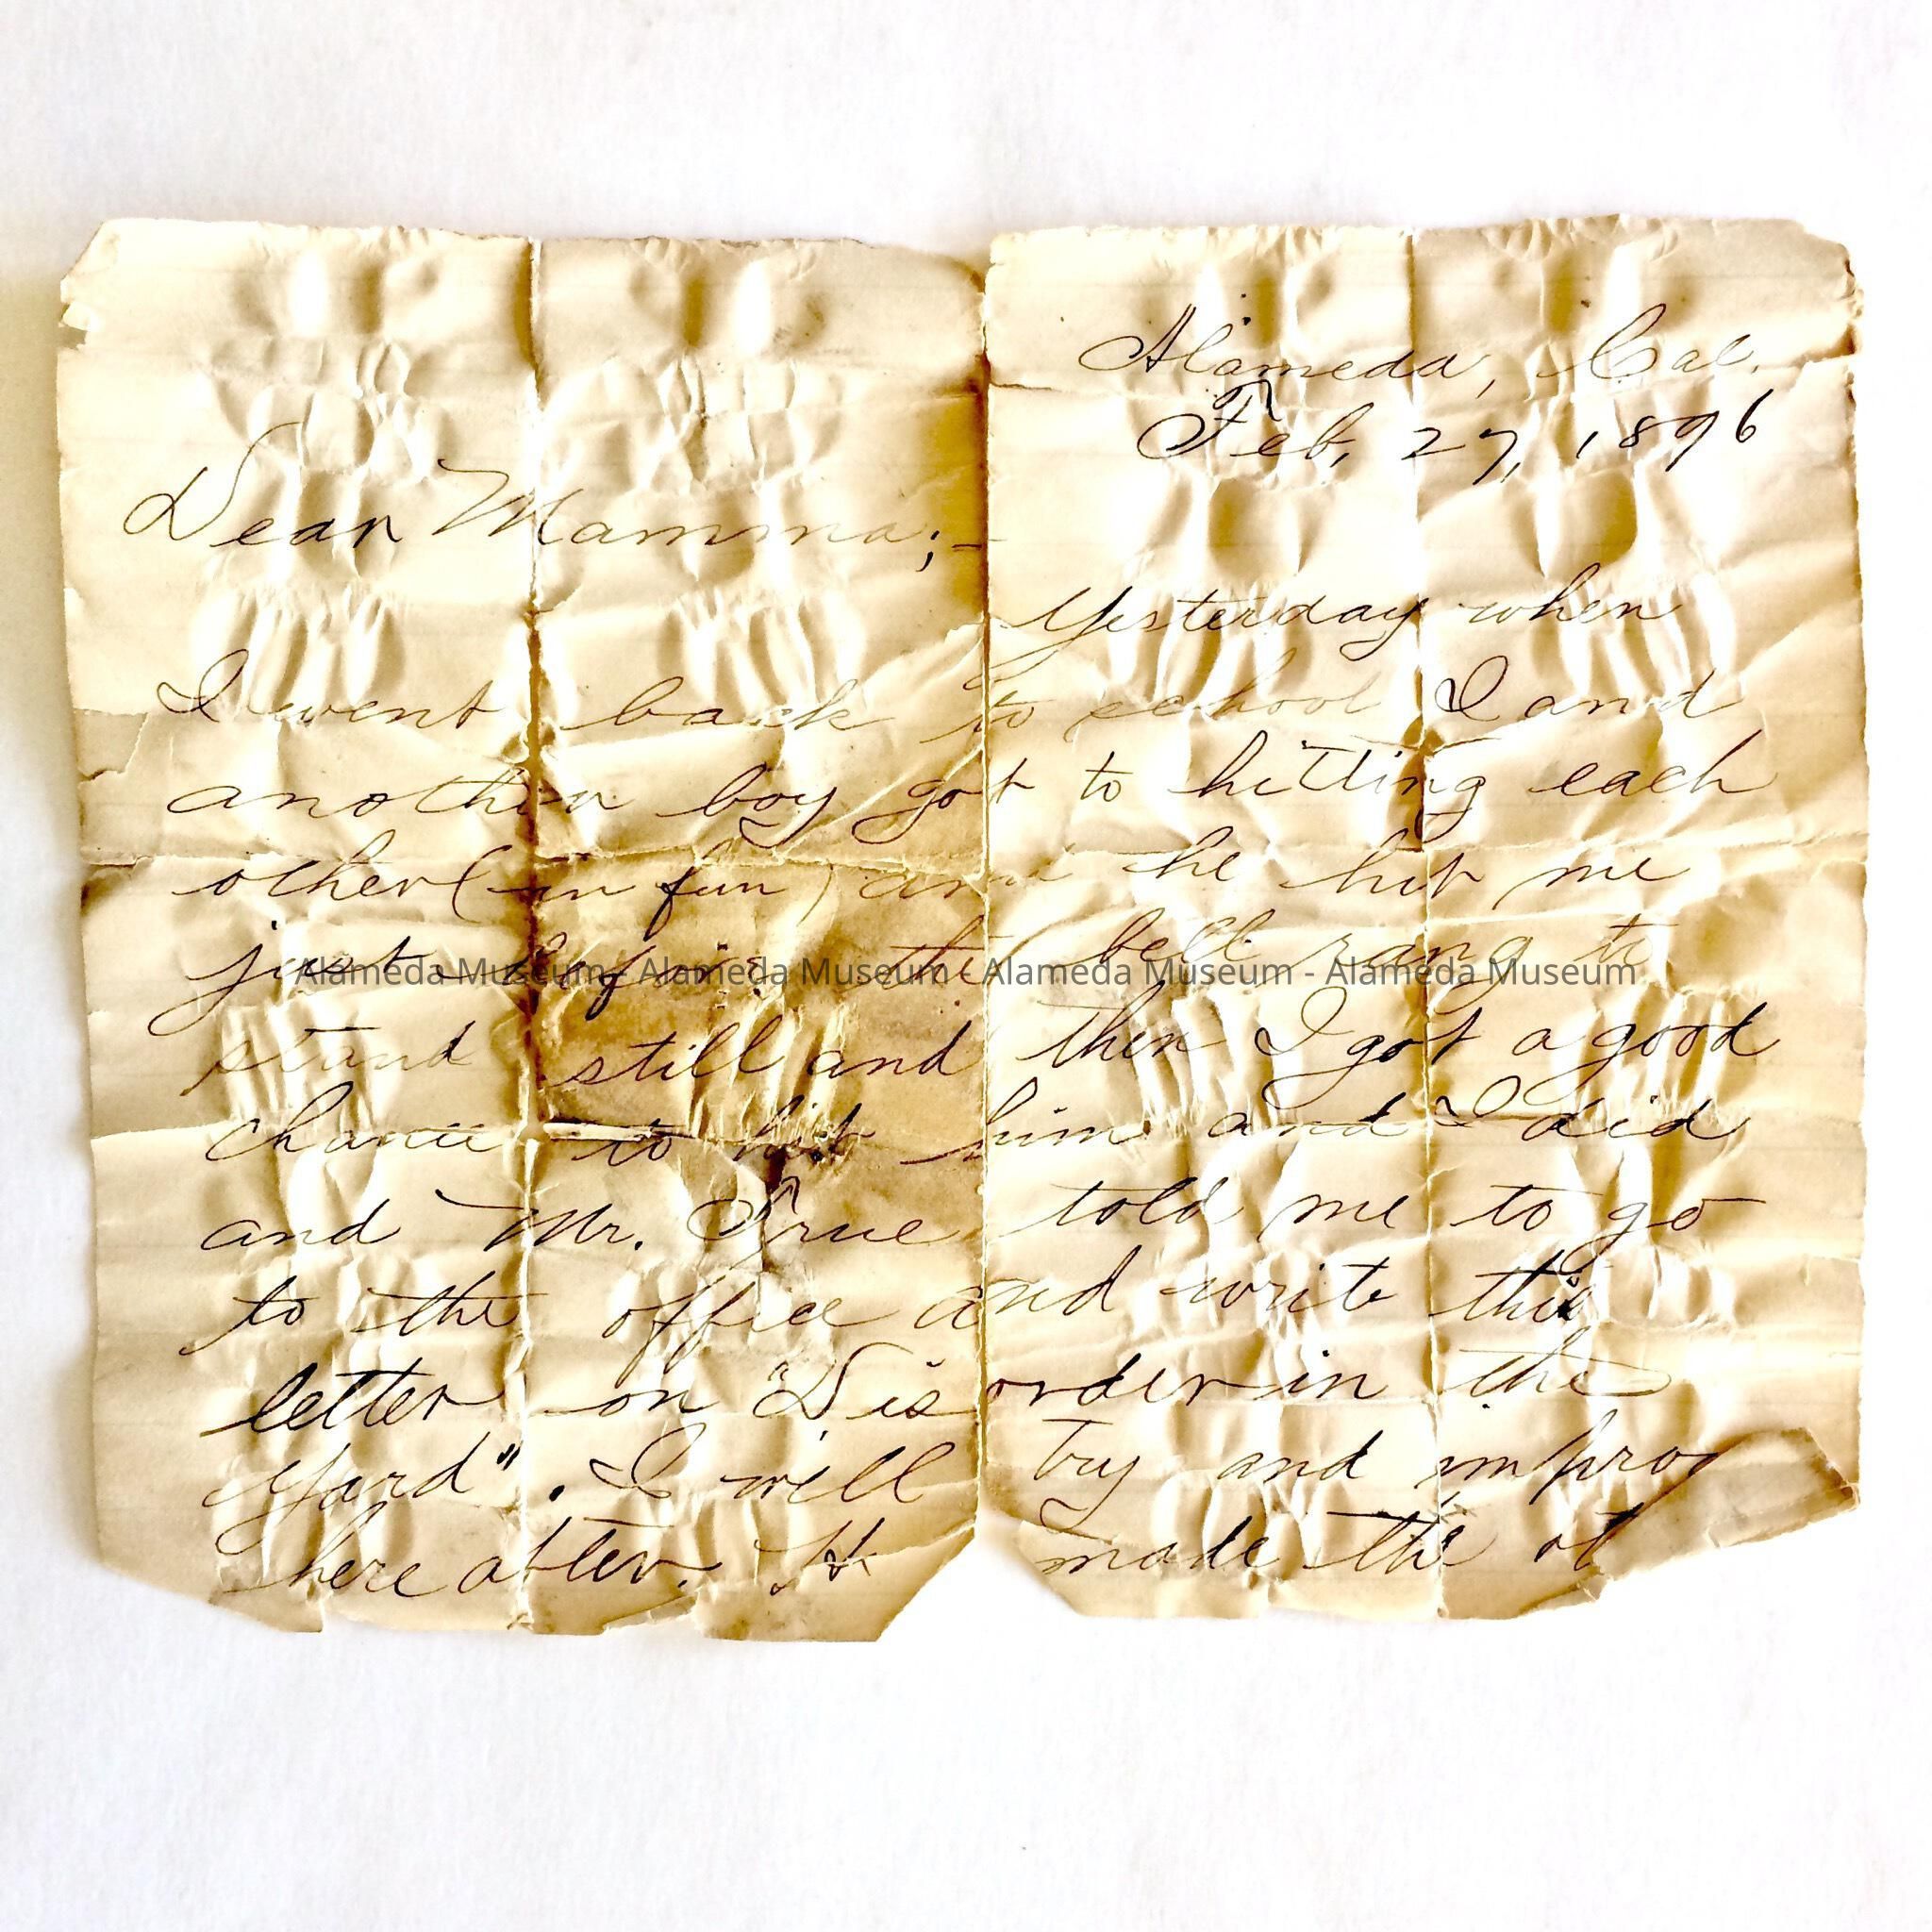 Alameda, Cal.
Feb, 27, 1896
Dear Mamma;-
Yesterday when
I went back to school I and
another boy got to hitting each
other (in fun) and he hit me
just before the bell rang to
Alameda Museum - Alameda Museum - Alameda Museum - Alameda Museum
stand still and then I got a good
chance to hit him and I did
and Mr. True told me to go
to the office and write this
letter on "Disorder in the
Yard". I will try and improv
here after. It made the ot